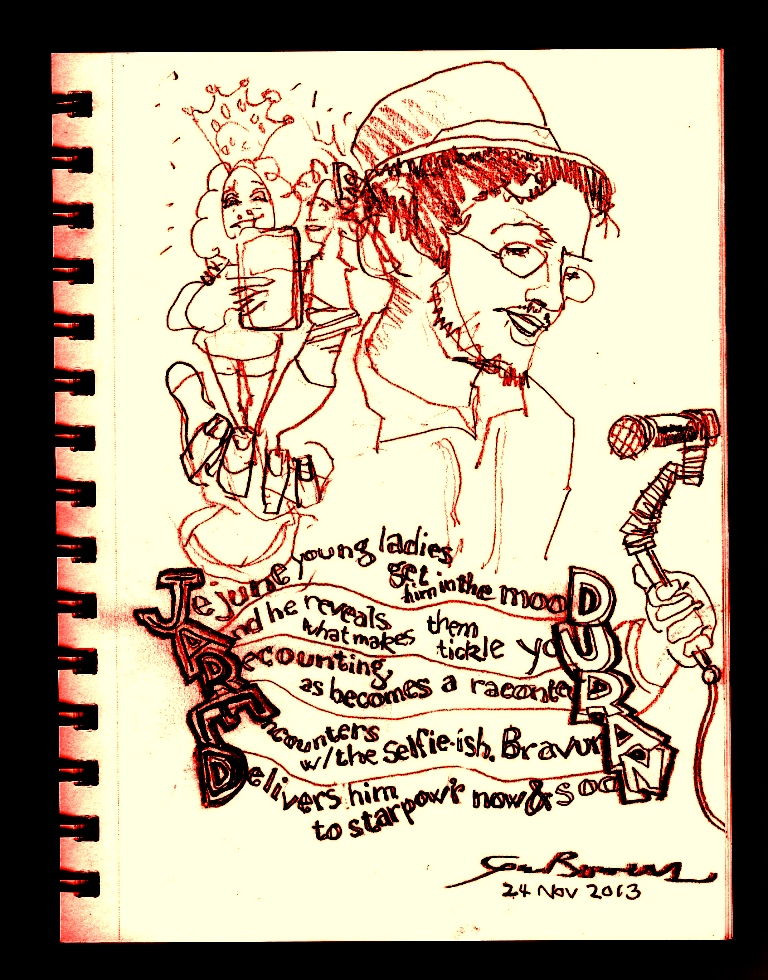 Jejune young ladies
get him in the mooD
And he reveals
what makes them tickle yoU
Recounting,
as becomes a raconteuR
Encounters
w/the selfie-ish. BravurA
Delivers him
to starpow'r now & sooN
24 Nov 2013